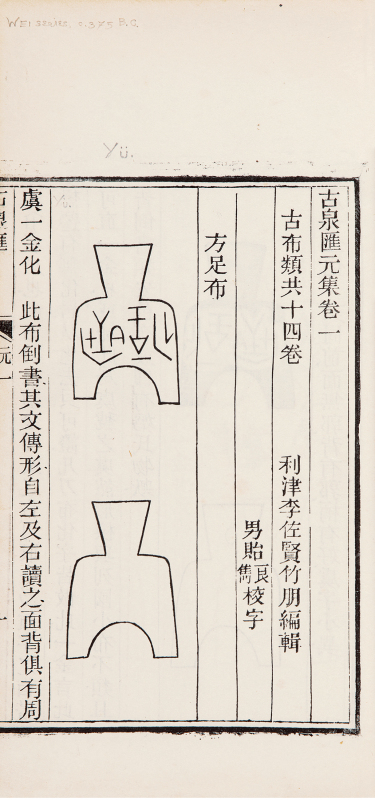 Yü.
古泉匯元集卷一
古布類共十四卷
利津李佐賢竹朋編輯
男貽良雋校字
方足布
虞一金化 此布倒書其文傳形自左及右讀之面背俱有周
元一